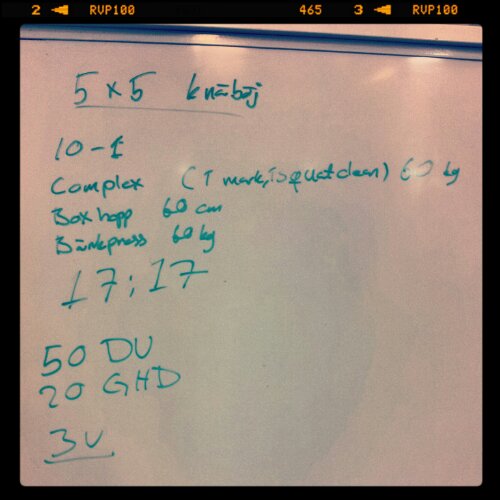 2 RVP100 465 3 RVP100
5 x 5 knäböj
10-1
Complex (1 mark, 1 squat clean) 60 kg
Box hopp 60 cm
Bänkpress 60 kg
17:17
50 DU
20 GHD
3V